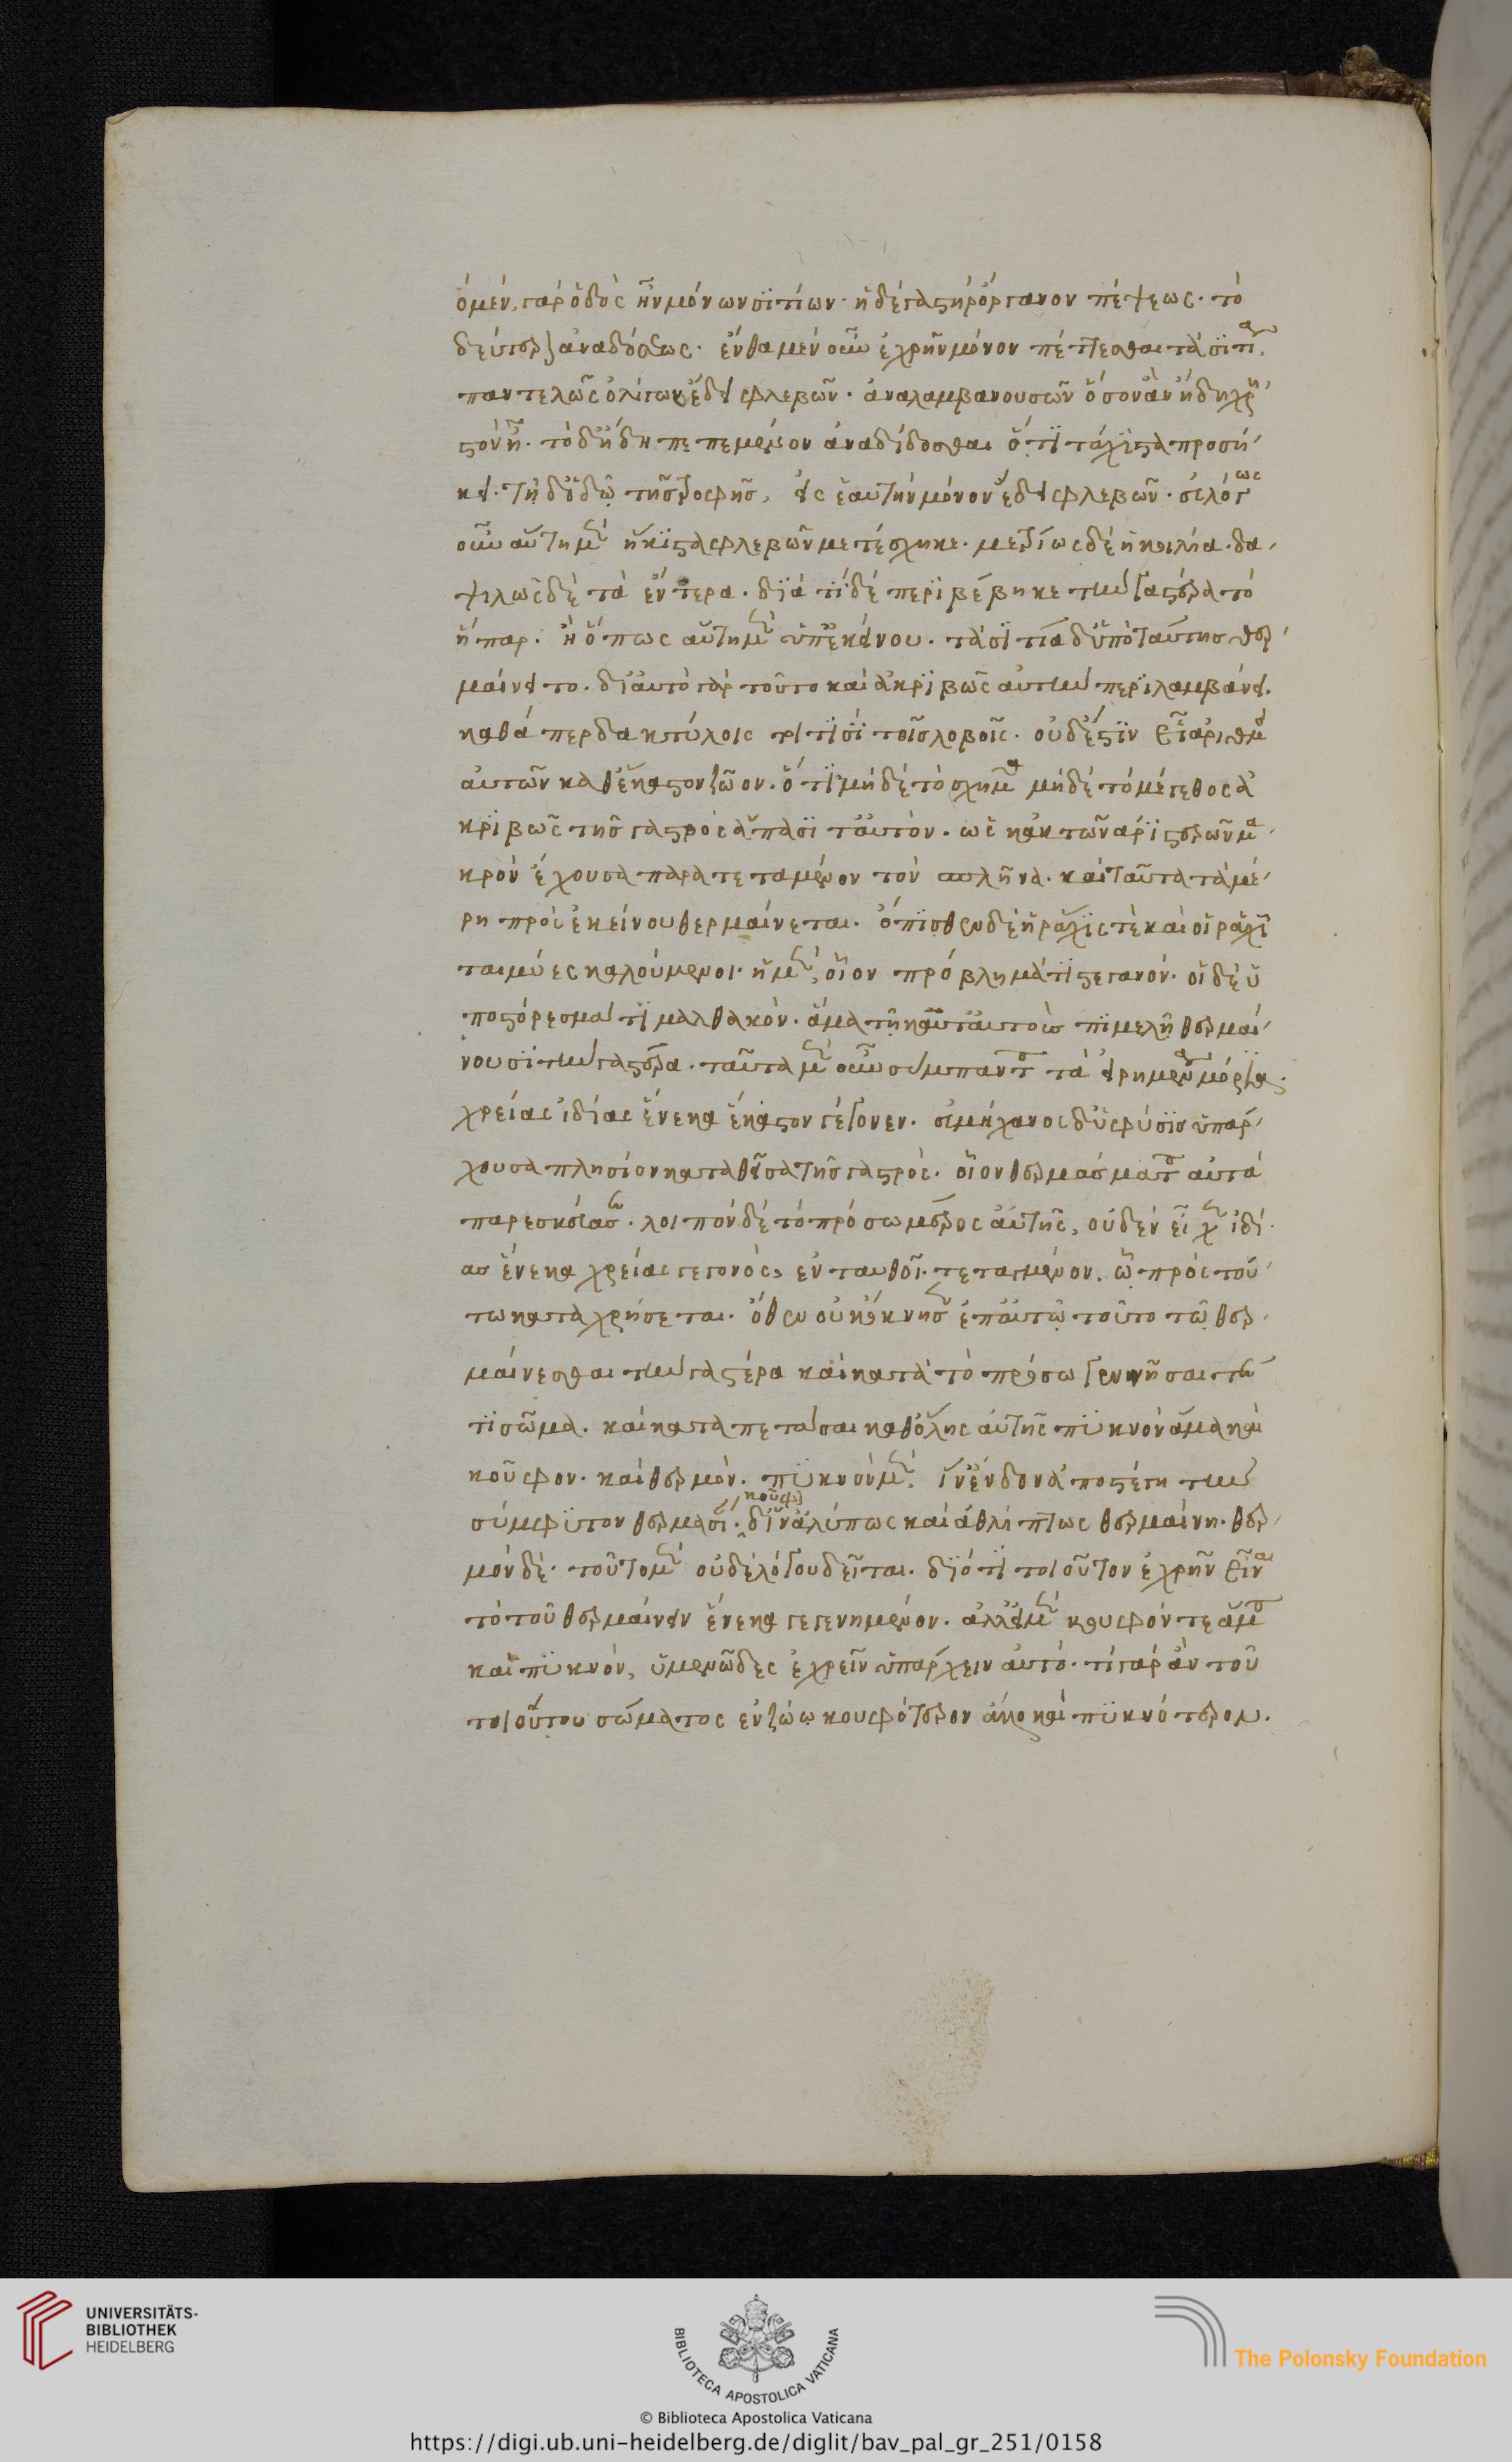 ὁ μὲν γὰρ ὁδὸς ἦν μόνων σϊτίων· ἡ δὲ γαστὴρ ὄργανον πέψεως· τὸ
δεύτερον ἀναδόσεως. ἔνθα μὲν οὖν ἐχρῆν μόνον πέττεσθαι τὰ σϊτία
παντελῶς ὀλίγων ἔδει φλεβῶν· ἀναλαμβανουσῶν ὅσον ἂν ἤδη χρη
στὸν ἦ. τὸ δ' ἤδη πεπεμμένον ἀναδίδοσθαι ὅτϊ τάχϊστα προσή
κει. τῆ δ' ὁδῶ τῆς τροφῆς, εἰς ἑαυτὴν μόνον ἔδει φλεβῶν. εὐλόγως
οὖν αὕτη μὲν ἥκϊστα φλεβῶν μετέσχηκε. μετρίως δὲ ἡ κοιλία. δα
ψιλῶς δὲ τὰ ἔντερα. δϊὰ τί δὲ περϊβέβηκε τὴν γαστέρα τὸ
ἧπαρ. ἢ ὅπως αὕτη μὲν ὑπ' ἐκείνου. τὰ σϊτία δ' ὑπὸ ταύτης θερ
μαίνοιτο. δι' αὐτὸ γὰρ τοῦτο καὶ ἀκρϊβῶς αὐτὴν περϊλαμβάνει.
καθάπερ δακτύλοις τϊσὶ τοῖς λοβοῖς. οὐδ' ἔστϊν εἷς ἀριθμὸς
αὐτῶν καθ' ἕκαστον ζῶον. ὅτϊ μηδὲ τὸ σχῆμα μηδὲ τὸ μέγεθος ἀ
κρϊβῶς τῆς γαστρὸς ἅπασϊ ταὐτόν. ὡς κἀκ τῶν ἀρϊστερῶν μα
κρὸν ἔχουσα παρατεταμένον τὸν σπλῆνα. καὶ ταῦτα τὰ μέ
ρη πρὸς ἐκείνου θερμαίνεται. ὄπϊσθεν δὲ ἡ ῥάχϊς τὲ καὶ οἱ ῥαχῖ
ται μύες καλούμενοι. ἡ μὲν, οἷον πρόβλημά τϊ στεγανόν. οἱ δὲ ὑ
ποστόρεσμά τϊ μαλθακόν. ἅμα τῆ κατ' αὐτοὺς πϊμελῆ θερμαί
νουσϊ τὴν γαστέρα. ταῦτα μὲν οὖν σύμπαντα τὰ εἰρημένα μόρϊα
χρείας ἰδίας ἕνεκα ἕκαστον γέγονεν. εὐμήχανος δ' ἡ φύσϊς ὑπάρ
χουσα πλησίον καταθεῖσα τῆς γαστρός. οἷον θερμάσματα αὐτὰ
παρεσκεύασεν. λοιπὸν δὲ τὸ πρόσω μέρος αὐτῆς, οὐδὲν εἶχεν ἰδί
ας ἕνεκα χρείας γεγονός, ἐνταυθοῖ τεταγμένον. ὧ πρὸς τού
τω καταχρήσεται. ὅθεν οὐκ ὤκνησεν ἐπ' αὐτῶ τοῦτο τῶ θερ
μαίνεσθαι τὴν γαστέρα καὶ κατὰ τὸ πρόσω γεννῆσαι
τϊ σῶμα. καὶ καταπετάσαι καθ' ὅλης αὐτῆς πϋκνὸν ἅμα καὶ
κοῦφον. καὶ θερμόν. πϋκνὸν μὲν, ἵν' ἔνδον ἀποστέγη τὴν
σύμφϋτον θερμασίαν. κοῦφον δ' ἵν' ἀλύπως καὶ ἀθλίπτως θερμαίνη. θερ
μὸν δὲ. τοῦτο μὲν οὐδὲ λόγου δεῖται. δϊότϊ τοιοῦτον ἐχρῆν εἶναι
τὸ τοῦ θερμαίνειν ἕνεκα γεγενημένον. ἀλλ' εἰ μὲν κουφόν τε ἅμα
καὶ πϋκνὸν, ὑμενῶδες ἐχρεῖν ὑπάρχειν αὐτό. τί γὰρ ἂν τοῦ
τοιούτου σώματος ἐν ζώω κουφότερον εἴη καὶ πϋκνότερον.
UNIVERSITÄTS-
BIBLIOTHEK
HEIDELBERG
BIBLIOTECA APOSTOLICA VATICANA
The Polonsky Foundation
© Biblioteca Apostolica Vaticana
https://digi.ub.uni-heidelberg.de/diglit/bav_pal_gr_251/0158